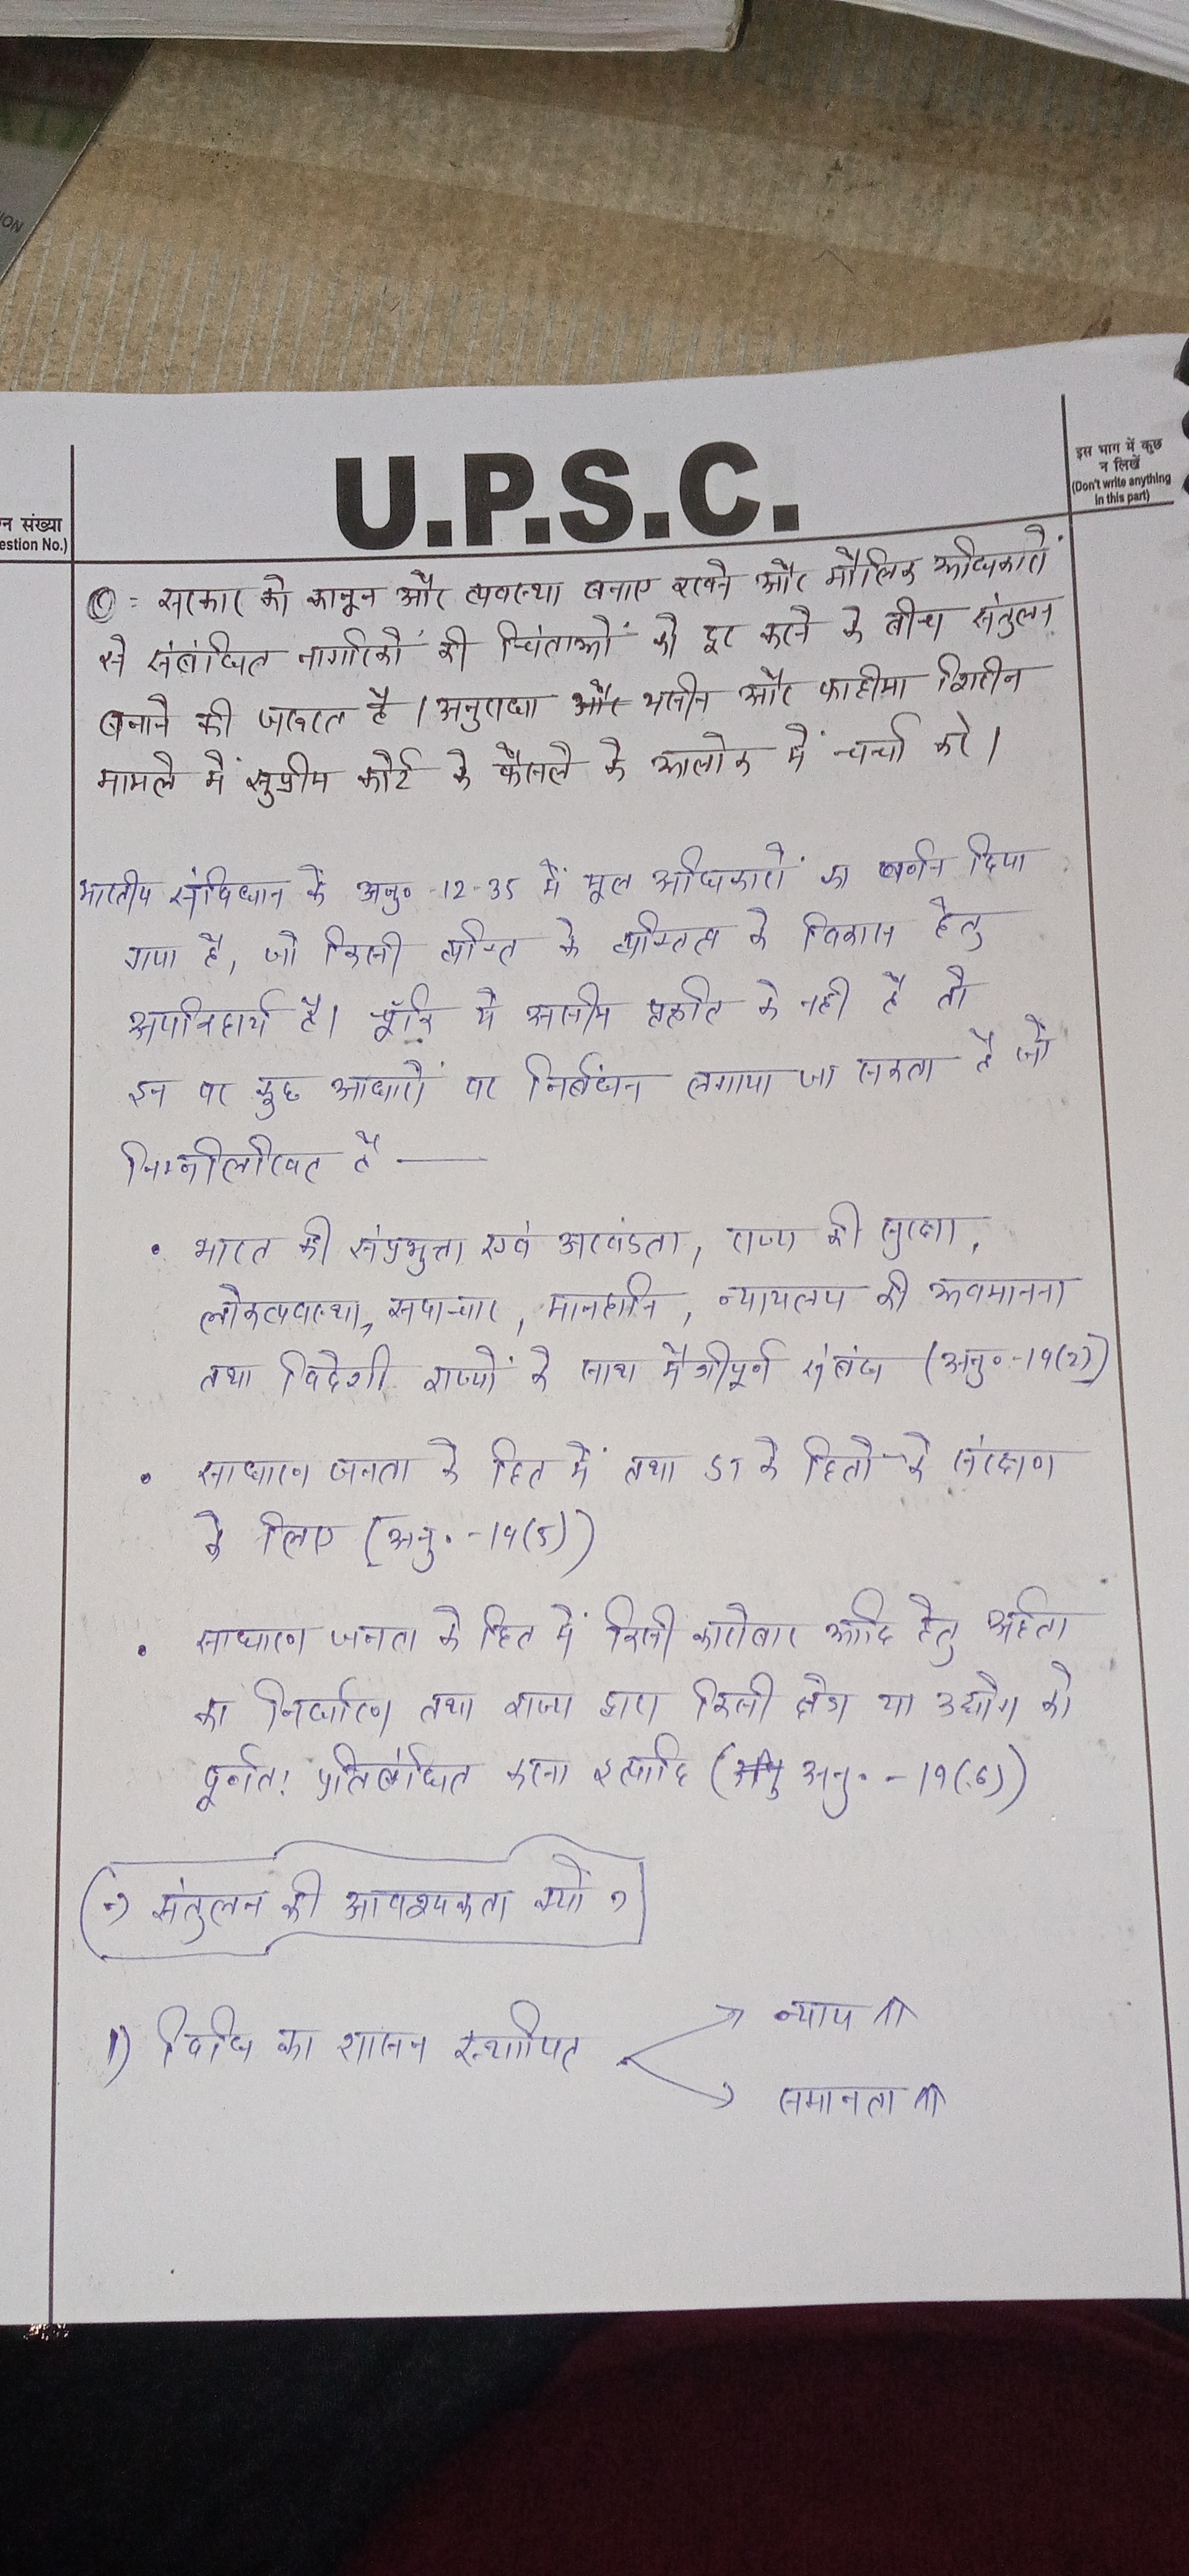 ION
U.P.S.C.
इस भाग में कुछ
न लिखें
(Don't write anything
in this part)
न संख्या
estion No.)
Q:- सरकार को कानून और व्यवस्था बनाए रखने और मौलिक अधिकारों
से संबंधित नागरिकों की चिंताओं को दूर करने के बीच संतुलन
बनाने की जरूरत है। अनुराधा और भसीन और फाहीमा शिरीन
मामले में सुप्रीम कोर्ट के फैसले के आलोक में चर्चा करे।
भारतीय संविधान के अनु० -12-35 में मूल अधिकारों का वर्णन दिया
गया है, जो किसी व्यक्ति के व्यक्तित्व के विकास हेतु
अपरिहार्य है। चूँकि ये असीम प्रकृति के नहीं है तो
इन पर कुछ आधारों पर निर्बंधन लगाया जा सकता है जो
निम्नलिखित है —
• भारत की संप्रभुता एवं अखंडता, राज्य की सुरक्षा,
लोकव्यवस्था, सदाचार, मानहानि, न्यायलय की अवमानना
तथा विदेशी राज्यों के साथ मैत्रीपूर्ण संबंध (अनु०-19(2))
• साधारण जनता के हित में तथा ST के हितों के संरक्षण
के लिए (अनु०-19(5))
• साधारण जनता के हित में किसी कारोबार आदि हेतु अर्हता
का निर्धारण तथा राज्य द्वारा किसी क्षेत्र या उद्योग को
पूर्णतः प्रतिबंधित करना इत्यादि (अनु०-19(6))
→ संतुलन की आवश्यकता क्यों?
1) विधि का शासन स्थापित
न्याय ↑↑
समानता ↑↑